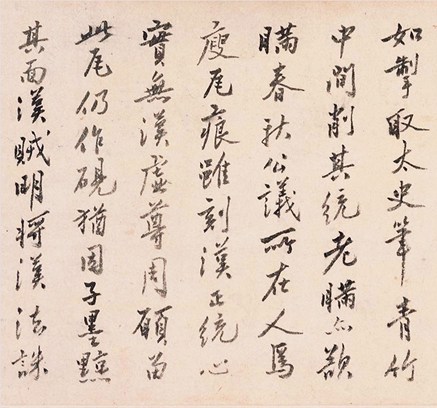 如掣取太史筆青竹
中間削其統老瞞欲
瞞春秋公議所在人焉
廋尾痕雖刻漢正統心
實無漢虛尊周願留
此尾仍作硯猶因子墨黥
其面漢賊明將漢法誅